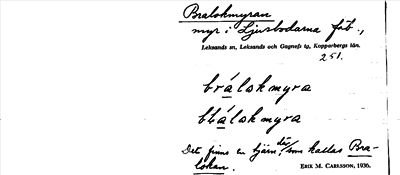 Bralokmyran
myr i Ljusbodarna fäb.,
Leksands sn, Leksands och Gagnefs tg, Kopparbergs län.
251.
brálokmyra
bbálokmyra
Det finns en tjärn där som kallas Bra-
lokan.
ERIK M. CARLSSON, 1936.